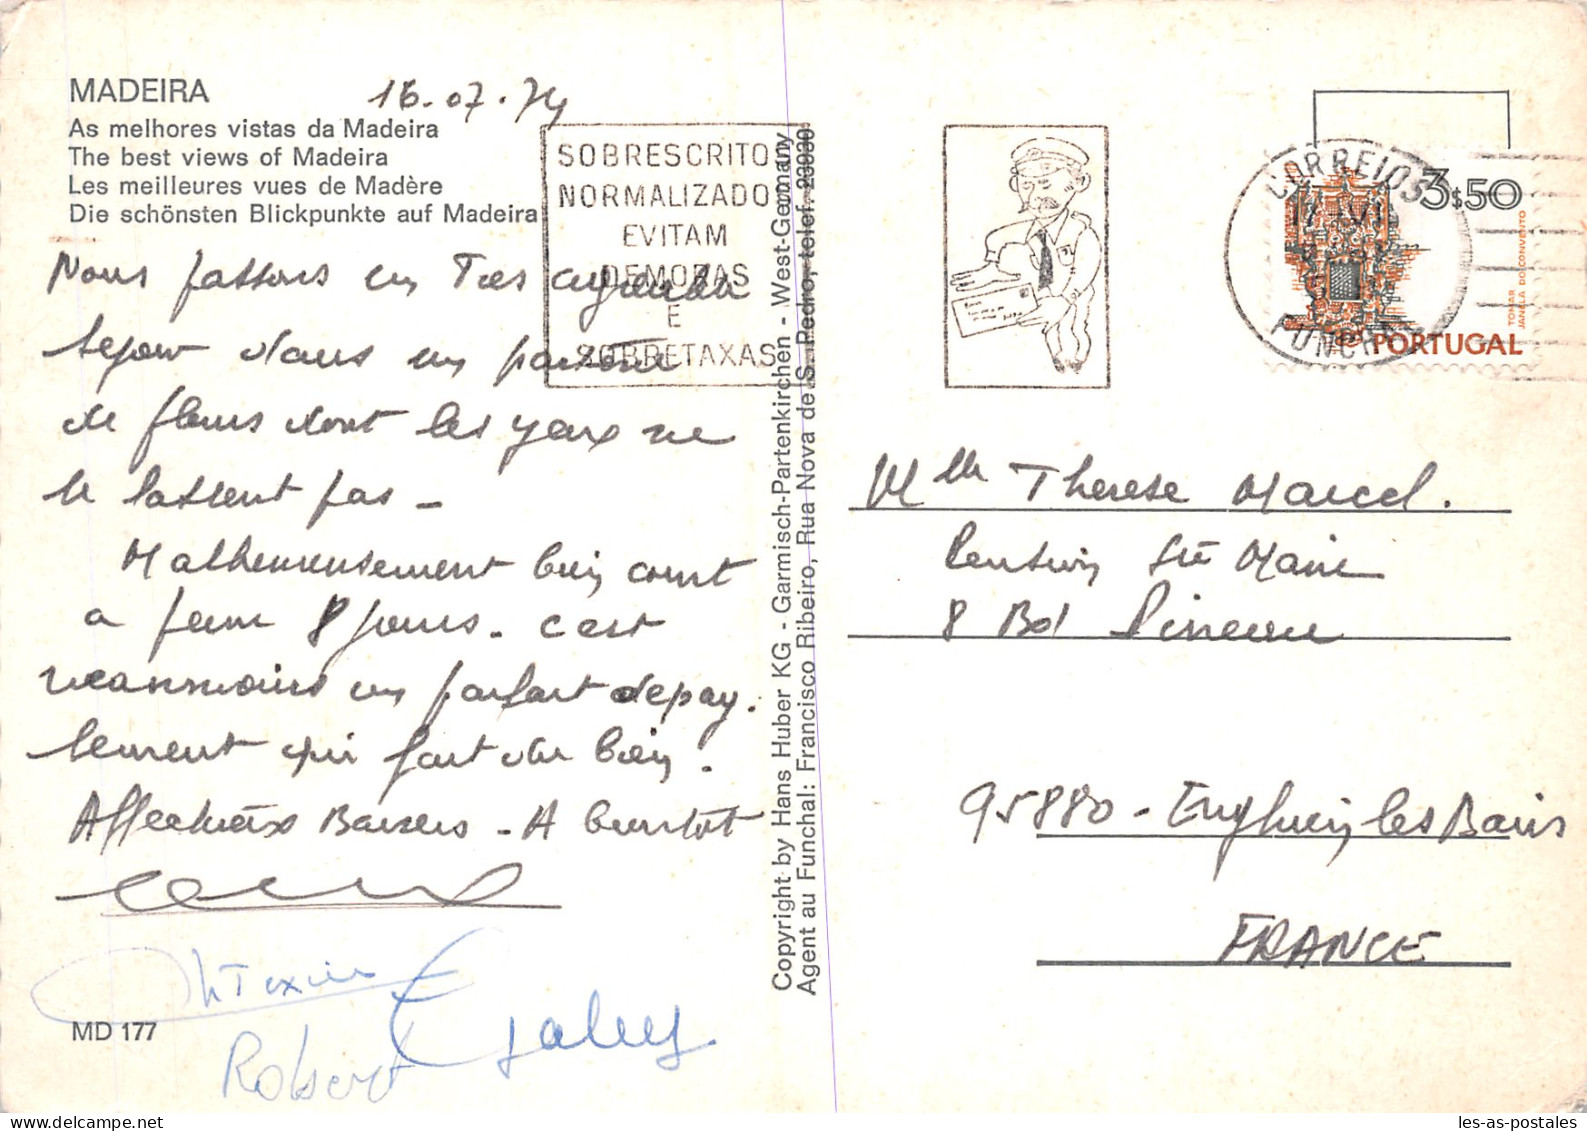 MADEIRA
16.07.74
As melhores vistas da Madeira
The best views of Madeira
Les meilleures vues de Madère
Die schönsten Blickpunkte auf Madeira
Nous passons un Très agréable
sejour dans un parterre
de fleurs dont les yeux ne
se lassent pas -
Malheureusement bien court
a peine 8 jours. c'est
neanmoins un parfait depay.
sement qui fait du bien.
Affectueux Baisers - A bientôt
Robert
MD 177
SOBRESCRITO
NORMALIZADO
EVITAM
DEMORAS
E
SOBRETAXAS
Copyright by Hans Huber KG - Garmisch-Partenkirchen - West-Germany
Agent au Funchal: Francisco Ribeiro, Rua Nova de S. Pedro, telef. 23930
CORREIOS
FUNCHAL
3$50
TOMAR
JANELA DO CONVENTO
PORTUGAL
Mlle Therese Marcel.
Pension Ste Marie
8 Bd
95880 - Enghien les Bains
FRANCE
les-as-postales